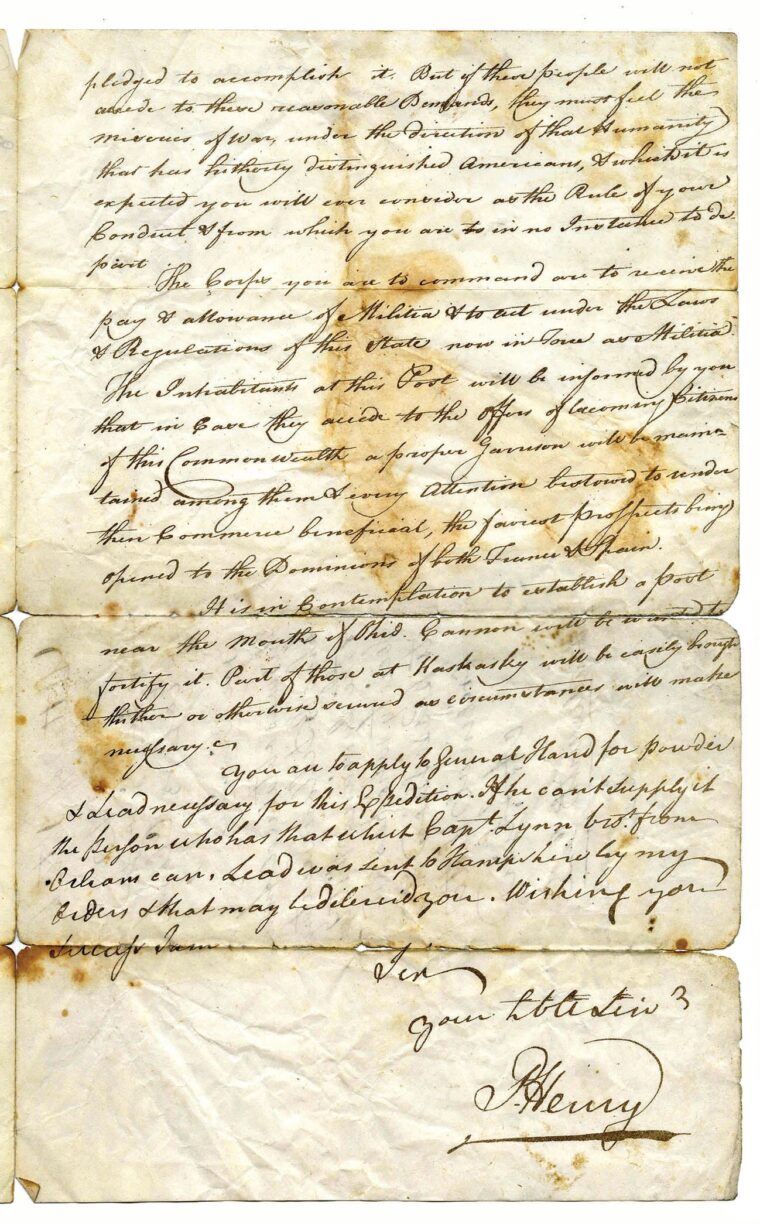 pledged to accomplish it. But if these people will not
accede to these reasonable Demands, they must feel the
miseries of War, under the direction of that Humanity
that has hitherto distinguished Americans, & which it is
expected you will ever consider as the Rule of your
Conduct & from which you are to in no Instance to de-
part
The Corps you are to command are to receive the
pay & allowance of Militia & to act under the Laws
& Regulations of this State now in Force as Militia.
The Inhabitants at this Post will be informed by you
that in Case they accede to the offers of becoming Citizens
of this Commonwealth a proper Garrison will be main=
tained among them & every Attention bestowed to render
their Commerce beneficial, the fairest prospects being
opened to the Dominions of both France & Spain.
It is in Contemplation to establish a post
near the Mouth of Ohio. Cannon will be wanted to
fortify it. Part of those at Kaskasky will be easily brought
thither or otherwise secured as circumstances will make
necessary.
You are to apply to General Hand for powder
& Lead necessary for this Expedition. If he can't supply it
the person who has that which Capt. Lynn brot. from
Orleans can. Lead was sent to Hampshire by my
Orders & that may be delivered you. Wishing you
success I am
Sir
your hble Serv
P. Henry